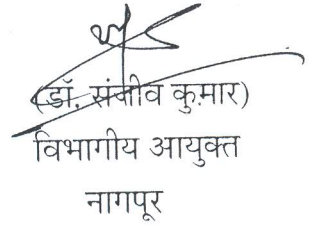 (डॉ. संजीव कुमार)
विभागीय आयुक्त
नागपूर